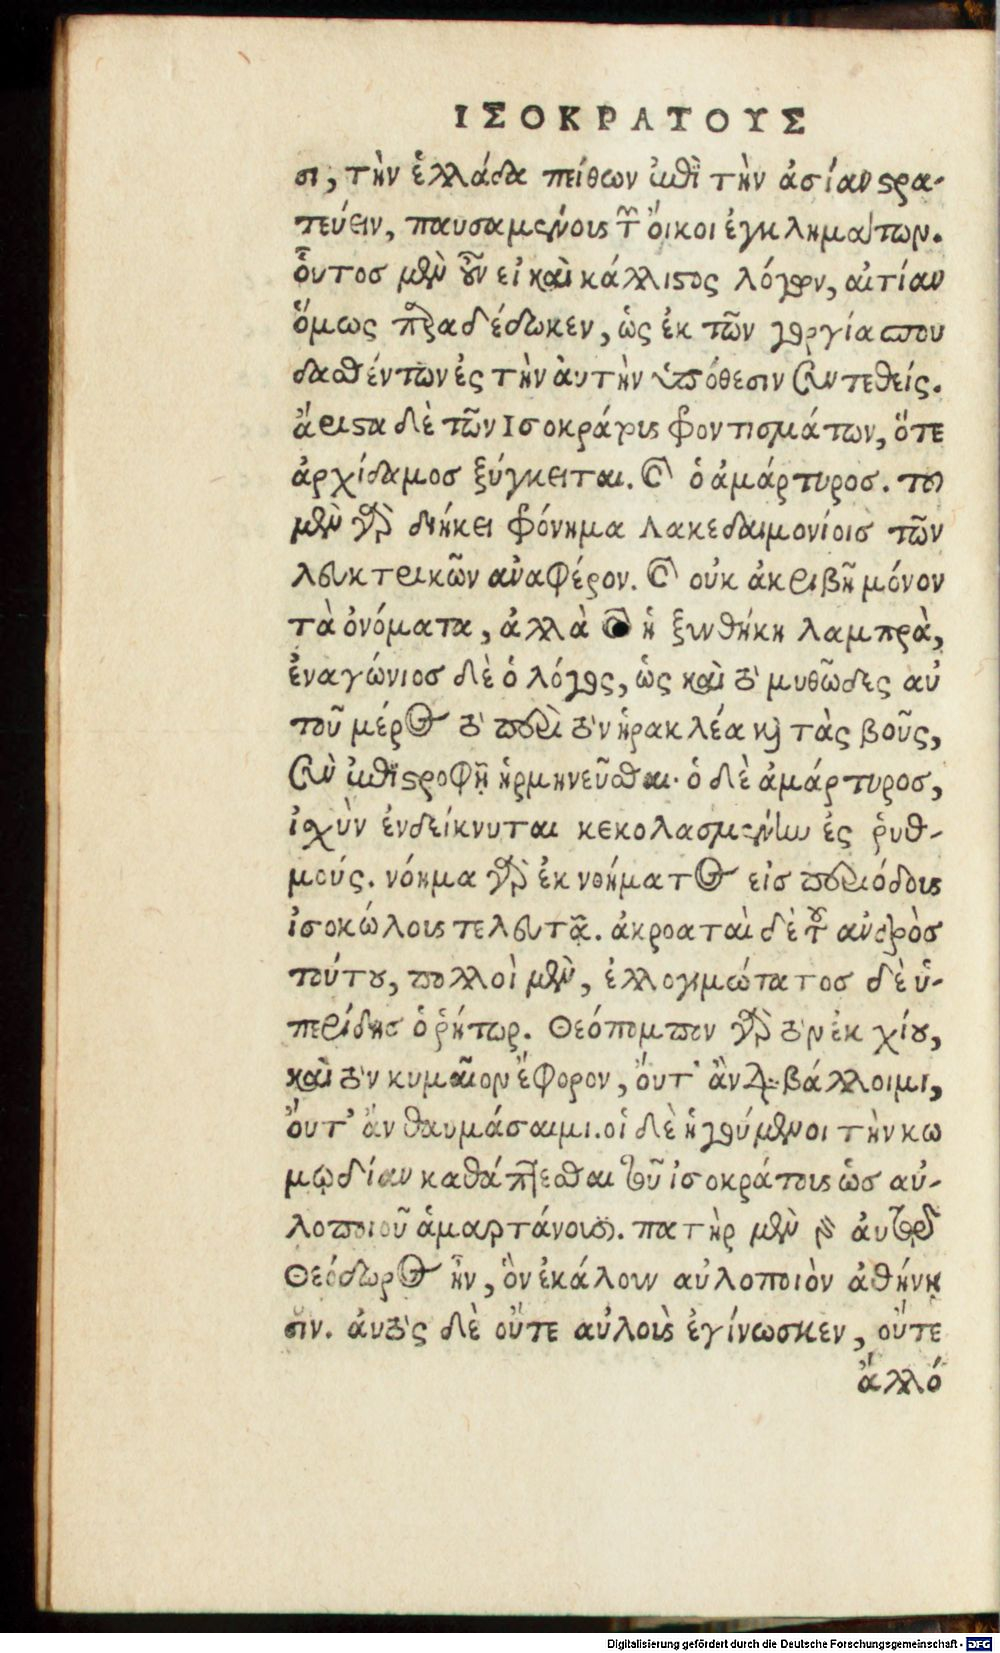 ΙΣΟΚΡΑΤΟΥΣ
σι, τὴν ἑλλάδα πείθων ἐπὶ τὴν ἀσίαν στρα-
τεύειν, παυσαμένους τῶν ὄικοι ἐγκλημάτων.
οὗτοσ μὲν οὖν εἰ καὶ κάλλιστος λόγων, αἰτίαν
ὅμως παραδέδωκεν, ὡς ἐκ τῶν γοργία σπου
δασθέντων ἐς τὴν ἀυτὴν ὑπόθεσιν συντεθείς.
ἄριστα δὲ τῶν Ισοκράτους φροντισμάτων, ὅτε
ἀρχίδαμοσ ξύγκειται. καὶ ὁ ἀμάρτυροσ. τοῦ
μὲν γὰρ διήκει φρόνημα Λακεδαιμονίοισ τῶν
λευκτρικῶν ἀναφέρον. καὶ οὐκ ἀκριβῆ μόνον
τὰ ὀνόματα, ἀλλὰ καὶ ἡ ξυνθήκη λαμπρὰ,
ἐναγώνιοσ δὲ ὁ λόγος, ὡς καὶ τὸ μυθῶδες αὐ
τοῦ μέρος τὸ περὶ τὸν ἡρακλέα καὶ τὰς βοῦς,
σὺν ἐπιστροφῇ ἡρμηνεῦσθαι. ὁ δὲ ἀμάρτυροσ,
ἰσχὺν ἐνδείκνυται κεκολασμένην ἐς ῥυθ-
μούς. νόημα γὰρ ἐκ νοήματος εἰσ περιόδους
ἰσοκώλους τελευτᾷ. ἀκροαταὶ δὲ τοῦ ἀνδρὸσ
τούτου, πολλοὶ μὲν, ἐλλογιμώτατοσ δὲ ὑ-
περίδησ ὁ ῥήτωρ. Θεόπομπον γὰρ τὸν ἐκ χίου,
καὶ τὸν κυμαῖον ἔφορον, ὄυτ' ἂν διαβάλλοιμι,
ὄυτ' ἂν θαυμάσαιμι. οἱ δὲ ἡγούμενοι τὴν κω
μῳδίαν καθάπτεσθαι τοῦ ἰσοκράτους ὡσ αὐ-
λοποιοῦ ἁμαρτάνουσι. πατὴρ μὲν γὰρ ἀυτοῦ
Θεόδωρος ἦν, ὃν ἐκάλουν αὐλοποιὸν ἀθήνῃ
σιν. ἀυτὸς δὲ οὔτε αὐλοὺς ἐγίνωσκεν, οὔτε
ἄλλό
Digitalisierung gefördert durch die Deutsche Forschungsgemeinschaft - DFG